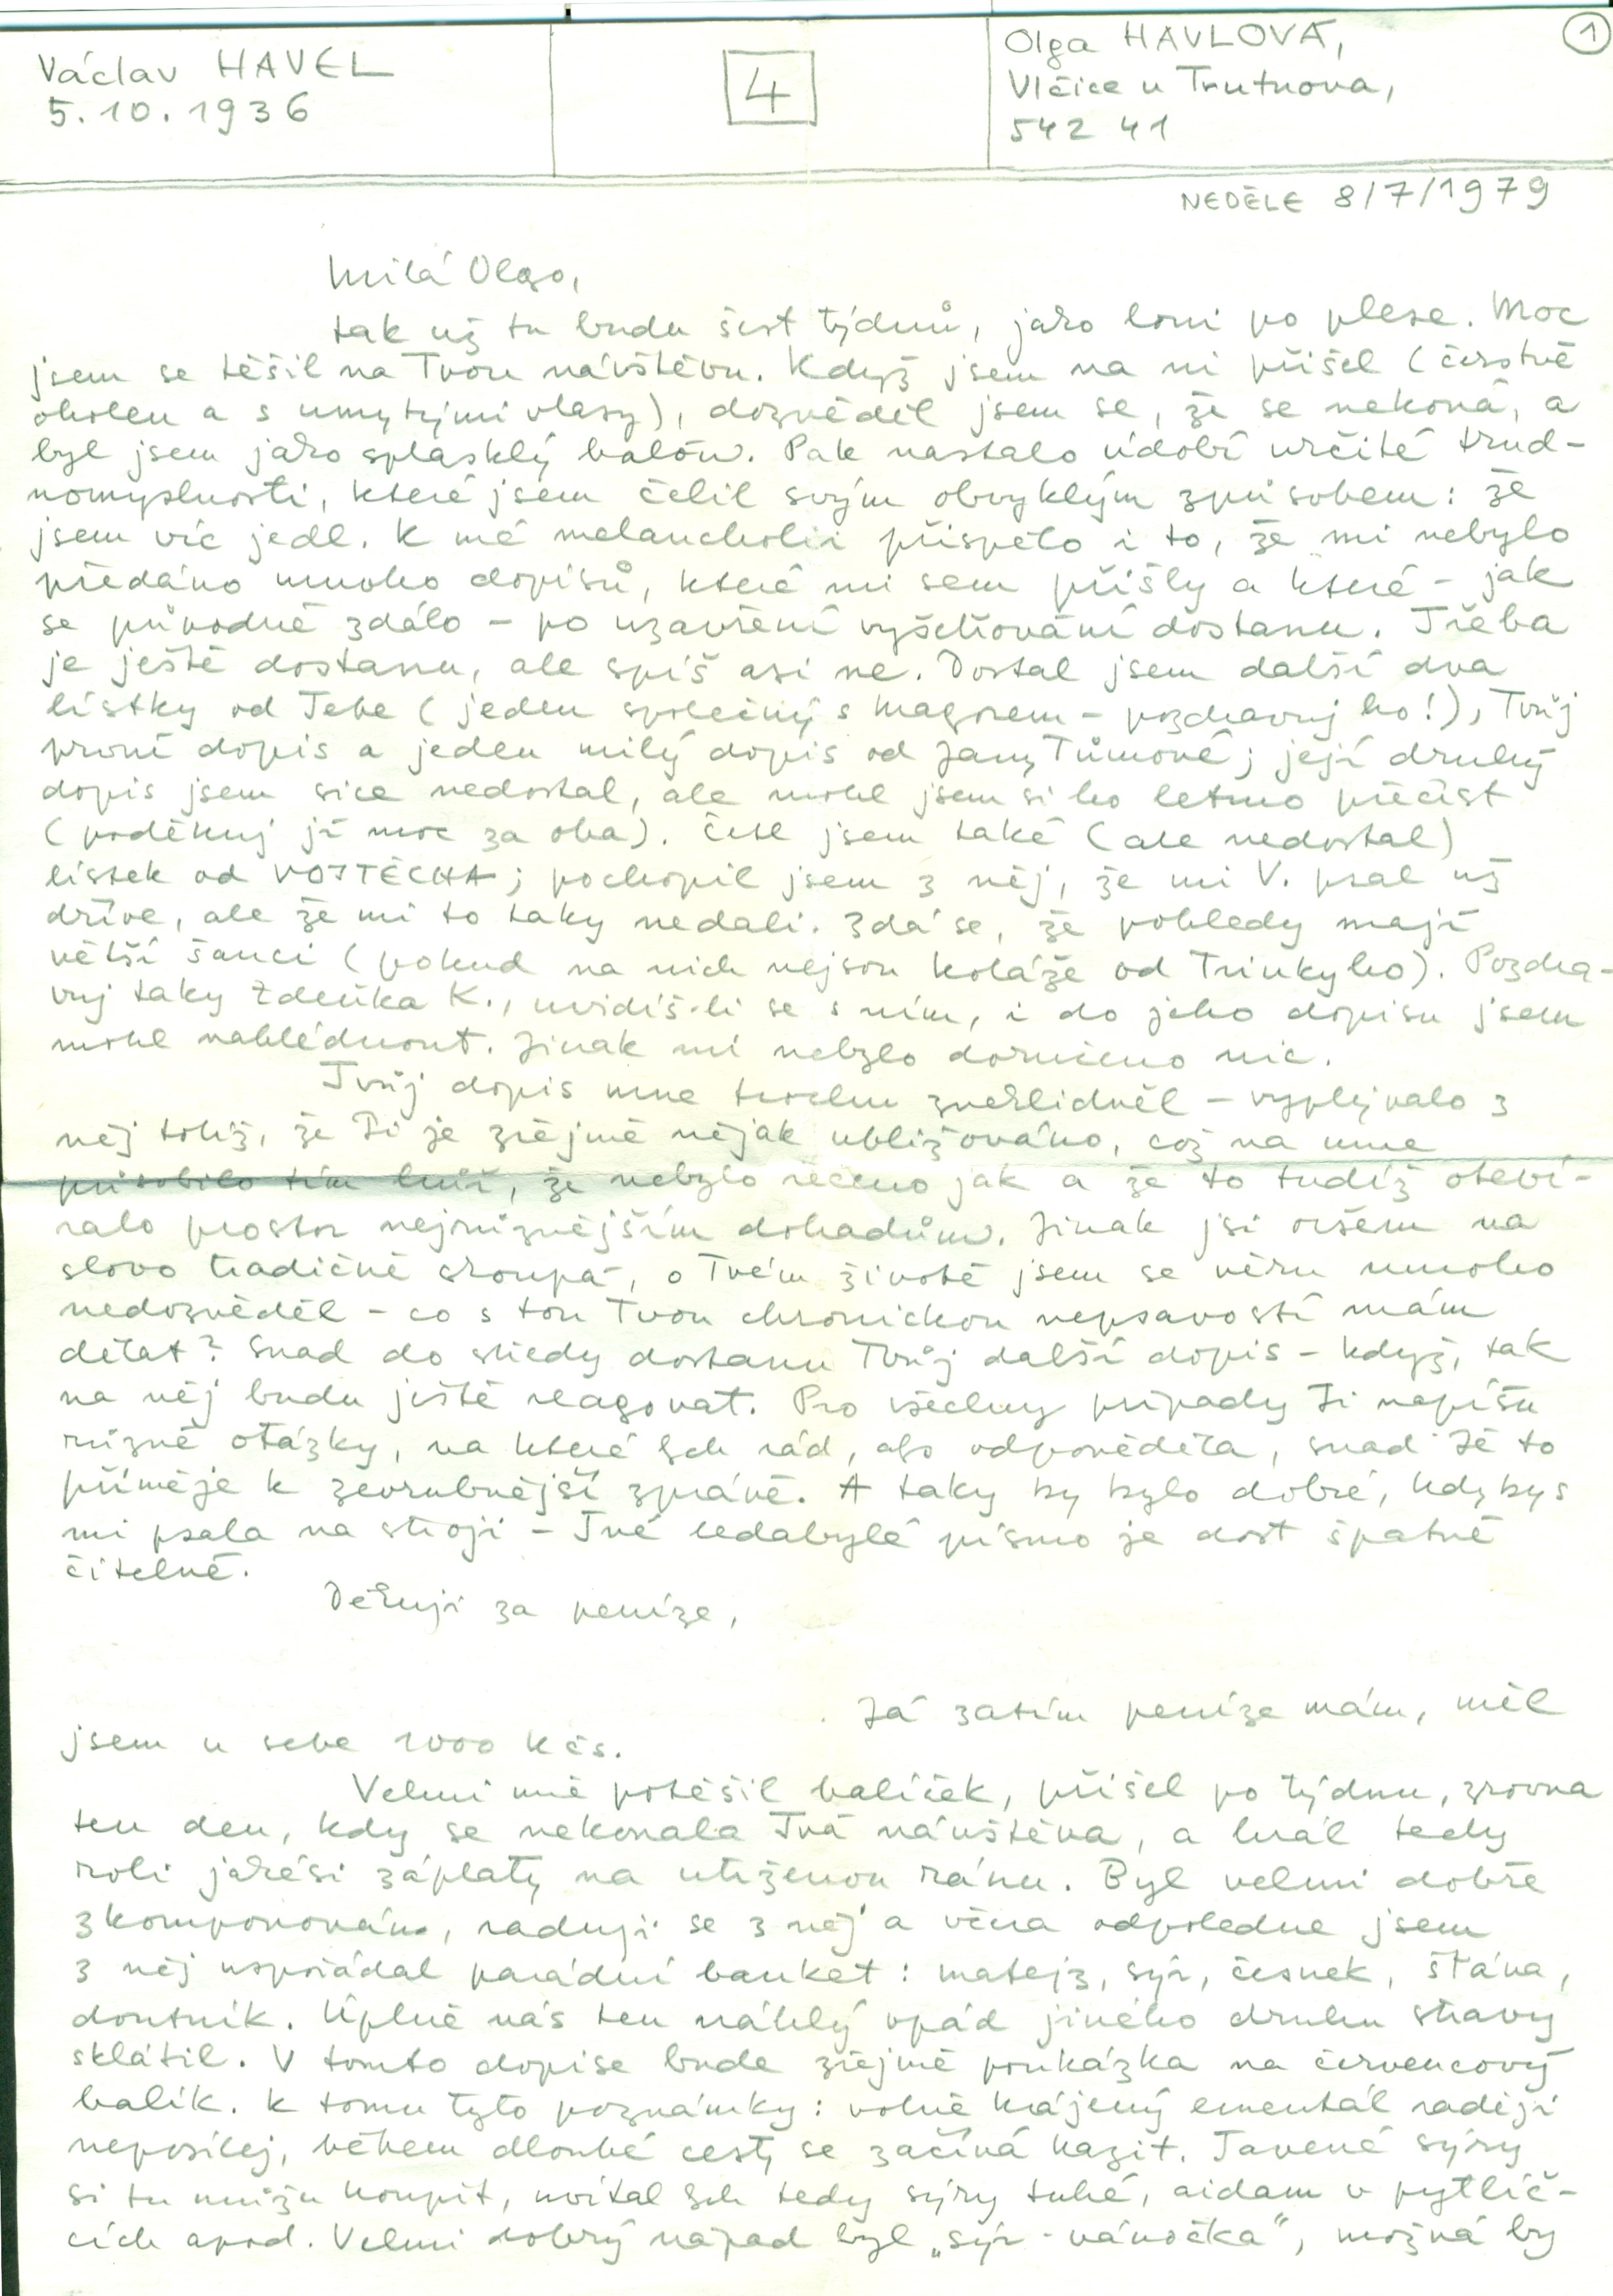 Václav HAVEL
5.10.1936
4
Olga HAVLOVÁ,
Vlčice u Trutnova,
542 41
1
NEDĚLE 8/7/1979
Milá Olgo,
tak už tu budu šest týdnů, jako loni po plese. Moc
jsem se těšil na Tvou návštěvu. Když jsem na ni přišel (čerstvě
oholen a s umytými vlasy), dozvěděl jsem se, že se nekoná, a
byl jsem jako splasklý balón. Pak nastalo údobí určité trud-
nomyslnosti, které jsem čelil svým obvyklým způsobem: že
jsem víc jedl. K mé melancholii přispělo i to, že mi nebylo
předáno mnoho dopisů, které mi sem přišly a které - jak
se původně zdálo - po uzavření vyšetřování dostanu. Třeba
je ještě dostanu, ale spíš asi ne. Dostal jsem další dva
lístky od Tebe (jeden společný s Magorem - pozdravuj ho!), Tvůj
první dopis a jeden milý dopis od Jany Tůmové; její druhý
dopis jsem sice nedostal, ale mohl jsem si ho letmo přečíst
(poděkuj jí moc za oba). Četl jsem také (ale nedostal)
lístek od VOJTĚCHA; pochopil jsem z něj, že mi V. psal už
dříve, ale že mi to taky nedali. Zdá se, že pohledy mají
větší šanci (pokud na nich nejsou koláže od Trinkyho). Pozdra-
vuj taky Zdeňka K., uvidíš-li se s ním, i do jeho dopisu jsem
mohl nahlédnout. Jinak mi nebylo doručeno nic.
Tvůj dopis mne trochu zneklidněl - vyplývalo z
něj totiž, že Ti je zřejmě nějak ubližováno, což na mne
působilo tím hůř, že nebylo řečeno jak a že to tudíž oteví-
ralo prostor nejrůznějším dohadům. Jinak jsi ovšem na
slovo tradičně skoupá, o Tvém životě jsem se věru mnoho
nedozvěděl - co s tou Tvou chronickou nepsavostí mám
dělat? Snad do středy dostanu Tvůj další dopis - když, tak
na něj budu ještě reagovat. Pro všechny případy Ti napíšu
různé otázky, na které bch rád, abs odpověděla, snad Tě to
přiměje k zevrubnější zprávě. A taky by bylo dobré, kdybys
mi psala na stroji - Tvé ledabylé písmo je dost špatně
čitelné.
Děkuji za peníze,
Já zatím peníze mám, měl
jsem u sebe 1000 Kčs.
Velmi mě potěšil balíček, přišel po týdnu, zrovna
ten den, kdy se nekonala Tvá návštěva, a hrál tedy
roli jakési záplaty na utrženou ránu. Byl velmi dobře
zkomponován, raduji se z něj a včera odpoledne jsem
z něj uspořádal parádní banket: matejz, sýr, česnek, šťáva,
doutník. Úplně nás ten náhlý vpád jiného druhu stravy
sklátil. V tomto dopise bude zřejmě poukázka na červencový
balík. K tomu tyto poznámky: volně krájený ementál raději
neposílej, během dlouhé cesty se začíná kazit. Tavené sýry
si tu můžu koupit, uvítal bch tedy sýry tuhé, aidam v pytlíč-
cích apod. Velmi dobrý nápad byl „sýr-vánočka“, možná by